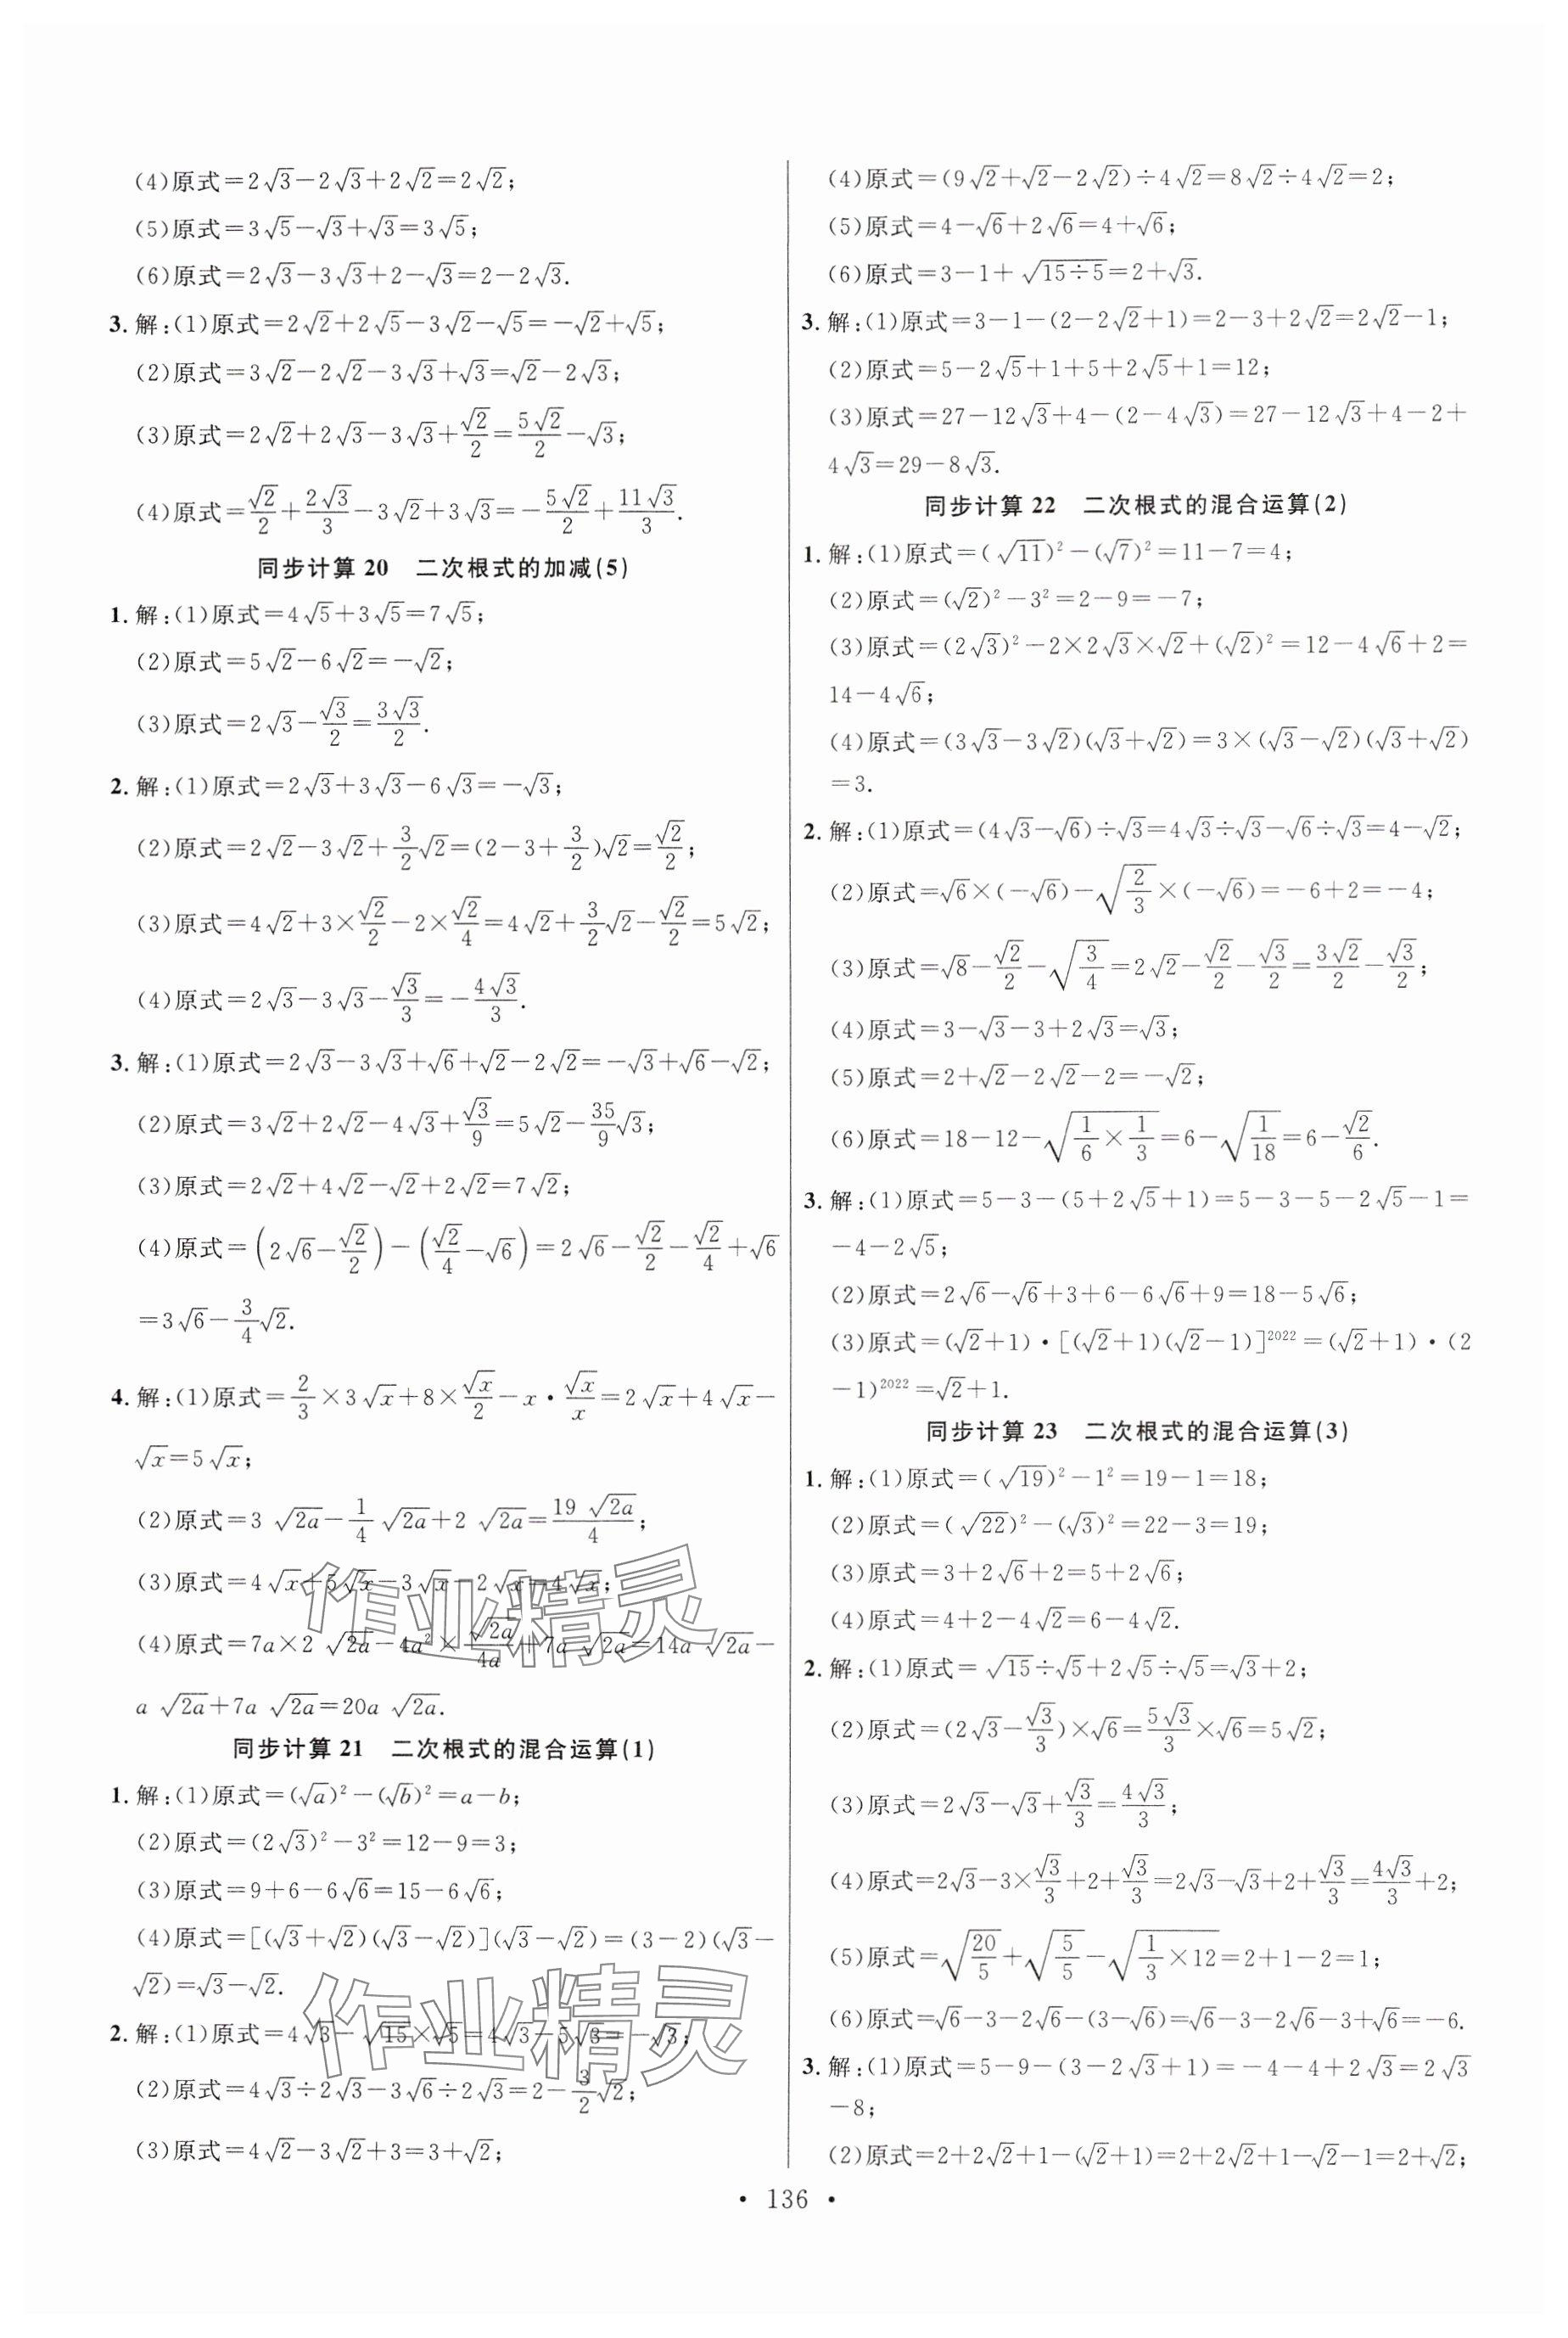 (4)原式=2√3-2√3+2√2=2√2;
(5)原式=3√5-√3+√3=3√5;
(6)原式=2√3-3√3+2-√3=2-2√3.
3.解:(1)原式=2√2+2√5-3√2-√5=-√2+√5;
(2)原式=3√2-2√2-3√3+√3=√2-2√3;
(3)原式=2√2+2√3-3√3+√2/2=5√2/2-√3;
(4)原式=√2/2+2√3/3-3√2+3√3=-5√2/2+11√3/3.
同步计算20 二次根式的加减(5)
1.解:(1)原式=4√5+3√5=7√5;
(2)原式=5√2-6√2=-√2;
(3)原式=2√3-√3/2=3√3/2.
2.解:(1)原式=2√3+3√3-6√3=-√3;
(2)原式=2√2-3√2+3/2√2=(2-3+3/2)√2=√2/2;
(3)原式=4√2+3×√2/2-2×√2/4=4√2+3/2√2-√2/2=5√2;
(4)原式=2√3-3√3-√3/3=-4√3/3.
3.解:(1)原式=2√3-3√3+√6+√2-2√2=-√3+√6-√2;
(2)原式=3√2+2√2-4√3+√3/9=5√2-35/9√3;
(3)原式=2√2+4√2-√2+2√2=7√2;
(4)原式=(2√6-√2/2)-(√2/4-√6)=2√6-√2/2-√2/4+√6
=3√6-3/4√2.
4.解:(1)原式=2/3×3√x+8×√x/2-x·√x/x=2√x+4√x-
√x=5√x;
(2)原式=3√2a-1/4√2a+2√2a=19√2a/4;
(3)原式=4√x+5√x-3√x-2√x=4√x;
(4)原式=7a×2√2a-4a²×√2a/4a+7a√2a=14a√2a-
a√2a+7a√2a=20a√2a.
同步计算21 二次根式的混合运算(1)
1.解:(1)原式=(√a)²-(√b)²=a-b;
(2)原式=(2√3)²-3²=12-9=3;
(3)原式=9+6-6√6=15-6√6;
(4)原式=[(√3+√2)(√3-√2)](√3-√2)=(3-2)(√3-
√2)=√3-√2.
2.解:(1)原式=4√3-√15×√5=4√3-5√3=-√3;
(2)原式=4√3÷2√3-3√6÷2√3=2-3/2√2;
(3)原式=4√2-3√2+3=3+√2;
(4)原式=(9√2+√2-2√2)÷4√2=8√2÷4√2=2;
(5)原式=4-√6+2√6=4+√6;
(6)原式=3-1+√15÷5=2+√3.
3.解:(1)原式=3-1-(2-2√2+1)=2-3+2√2=2√2-1;
(2)原式=5-2√5+1+5+2√5+1=12;
(3)原式=27-12√3+4-(2-4√3)=27-12√3+4-2+
4√3=29-8√3.
同步计算22 二次根式的混合运算(2)
1.解:(1)原式=(√11)²-(√7)²=11-7=4;
(2)原式=(√2)²-3²=2-9=-7;
(3)原式=(2√3)²-2×2√3×√2+(√2)²=12-4√6+2=
14-4√6;
(4)原式=(3√3-3√2)(√3+√2)=3×(√3-√2)(√3+√2)
=3.
2.解:(1)原式=(4√3-√6)÷√3=4√3÷√3-√6÷√3=4-√2;
(2)原式=√6×(-√6)-√2/3×(-√6)=-6+2=-4;
(3)原式=√8-√2/2-√3/4=2√2-√2/2-√3/2=3√2/2-√3/2;
(4)原式=3-√3-3+2√3=√3;
(5)原式=2+√2-2√2-2=-√2;
(6)原式=18-12-√1/6×1/3=6-√1/18=6-√2/6.
3.解:(1)原式=5-3-(5+2√5+1)=5-3-5-2√5-1=
-4-2√5;
(2)原式=2√6-√6+3+6-6√6+9=18-5√6;
(3)原式=(√2+1)·[(√2+1)(√2-1)]²⁰²²=(√2+1)·(2
-1)²⁰²²=√2+1.
同步计算23 二次根式的混合运算(3)
1.解:(1)原式=(√19)²-1²=19-1=18;
(2)原式=(√22)²-(√3)²=22-3=19;
(3)原式=3+2√6+2=5+2√6;
(4)原式=4+2-4√2=6-4√2.
2.解:(1)原式=√15÷√5+2√5÷√5=√3+2;
(2)原式=(2√3-√3/3)×√6=5√3/3×√6=5√2;
(3)原式=2√3-√3+√3/3=4√3/3;
(4)原式=2√3-3×√3/3+2+√3/3=2√3-√3+2+√3/3=4√3/3+2;
(5)原式=√20/5+√5/5-√1/3×12=2+1-2=1;
(6)原式=√6-3-2√6-(3-√6)=√6-3-2√6-3+√6=-6.
3.解:(1)原式=5-9-(3-2√3+1)=-4-4+2√3=2√3
-8;
(2)原式=2+2√2+1-(√2+1)=2+2√2+1-√2-1=2+√2;
·136·
作业精灵
作业精灵